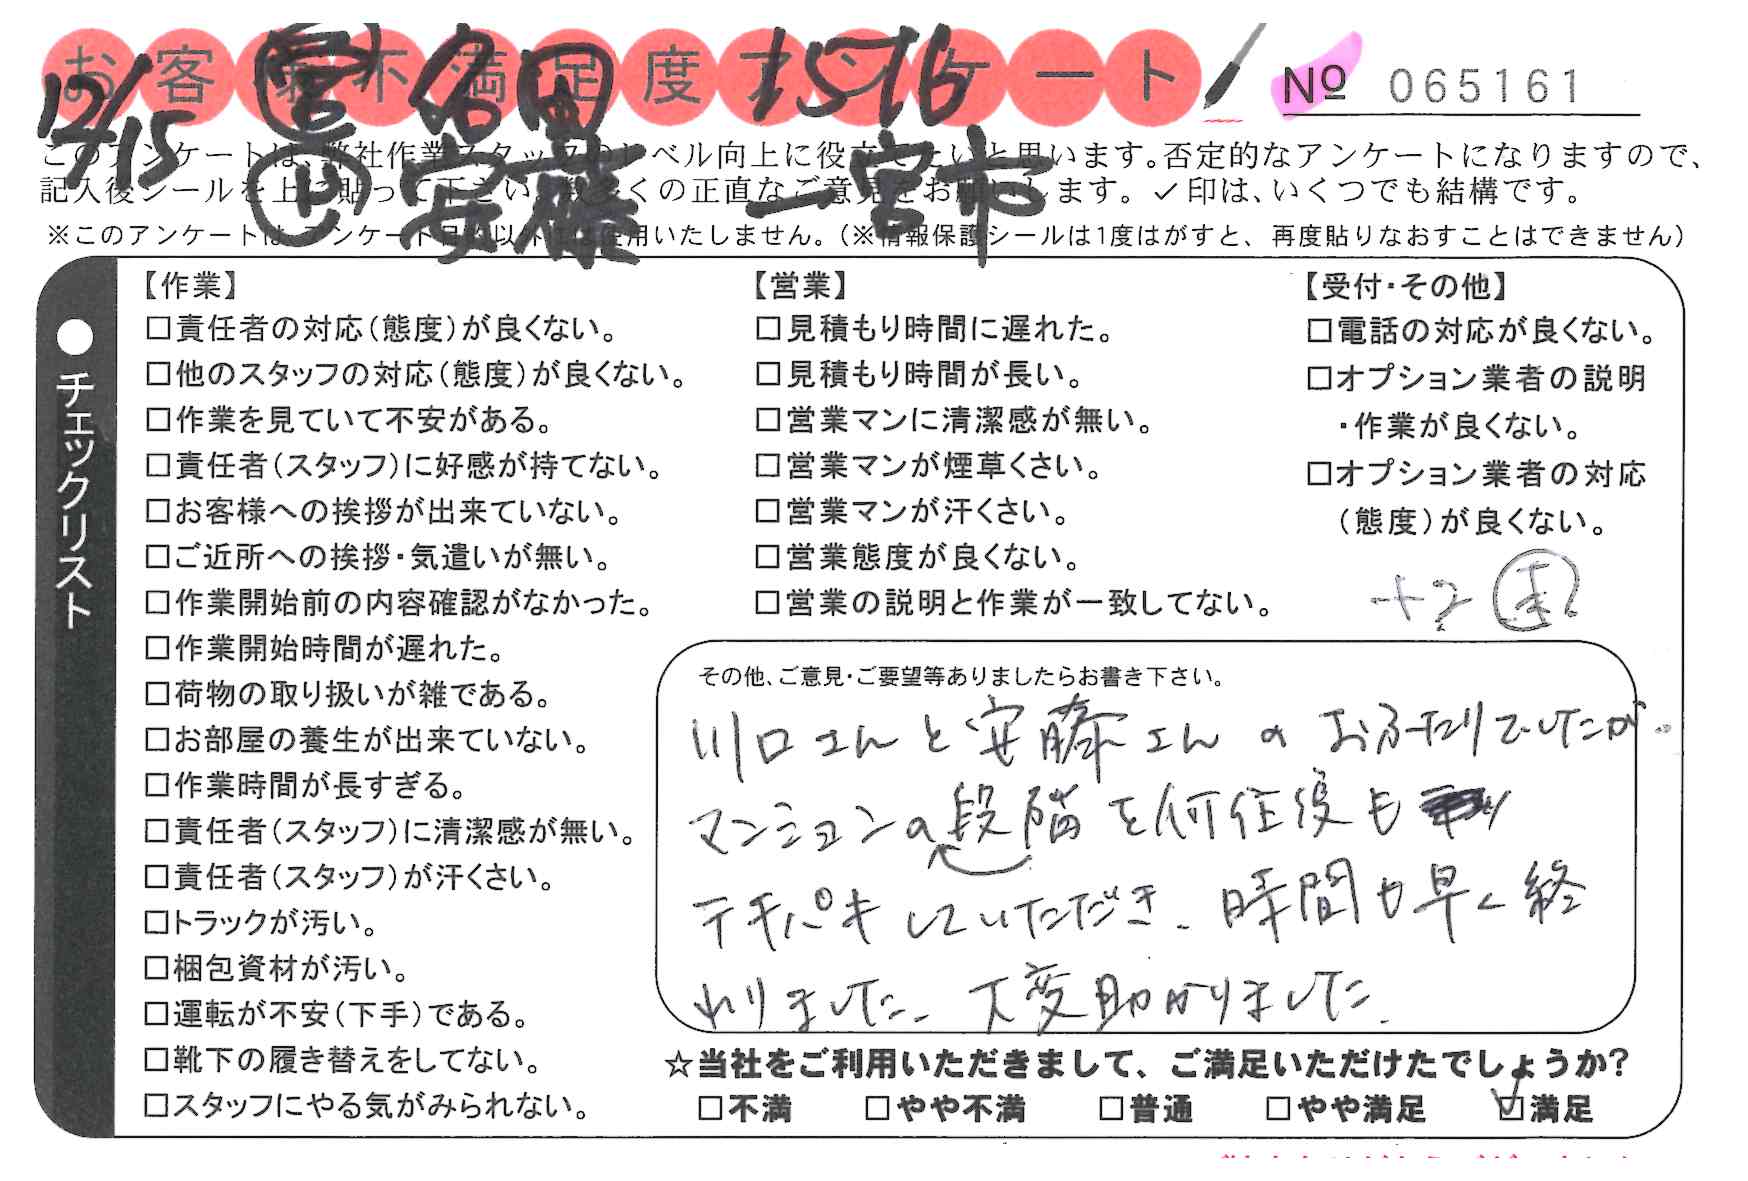 お客様不満足度アンケート
№ 065161
12/15 名田 1576
安藤 一宮市
このアンケートは、弊社作業スタッフのレベル向上に役立てたいと思います。否定的なアンケートになりますので、
記入後シールを上に貼って下さい。数多くの正直なご意見をお願いします。✓印は、いくつでも結構です。
※このアンケートは、アンケート目的以外には使用いたしません。(※情報保護シールは1度はがすと、再度貼りなおすことはできません)
●チェックリスト
【作業】
□責任者の対応(態度)が良くない。
□他のスタッフの対応(態度)が良くない。
□作業を見ていて不安がある。
□責任者(スタッフ)に好感が持てない。
□お客様への挨拶が出来ていない。
□ご近所への挨拶・気遣いが無い。
□作業開始前の内容確認がなかった。
□作業開始時間が遅れた。
□荷物の取り扱いが雑である。
□お部屋の養生が出来ていない。
□作業時間が長すぎる。
□責任者(スタッフ)に清潔感が無い。
□責任者(スタッフ)が汗くさい。
□トラックが汚い。
□梱包資材が汚い。
□運転が不安(下手)である。
□靴下の履き替えをしてない。
□スタッフにやる気がみられない。
【営業】
□見積もり時間に遅れた。
□見積もり時間が長い。
□営業マンに清潔感が無い。
□営業マンが煙草くさい。
□営業マンが汗くさい。
□営業態度が良くない。
□営業の説明と作業が一致してない。
【受付・その他】
□電話の対応が良くない。
□オプション業者の説明
・作業が良くない。
□オプション業者の対応
(態度)が良くない。
+2
その他、ご意見・ご要望等ありましたらお書き下さい。
川口さんと安藤さんのおふたりでしたが、
マンションの段階を何往復も
テキパキしていただき、時間も早く終
わりました。大変助かりました。
☆当社をご利用いただきまして、ご満足いただけたでしょうか?
□不満 □やや不満 □普通 □やや満足 ☑満足